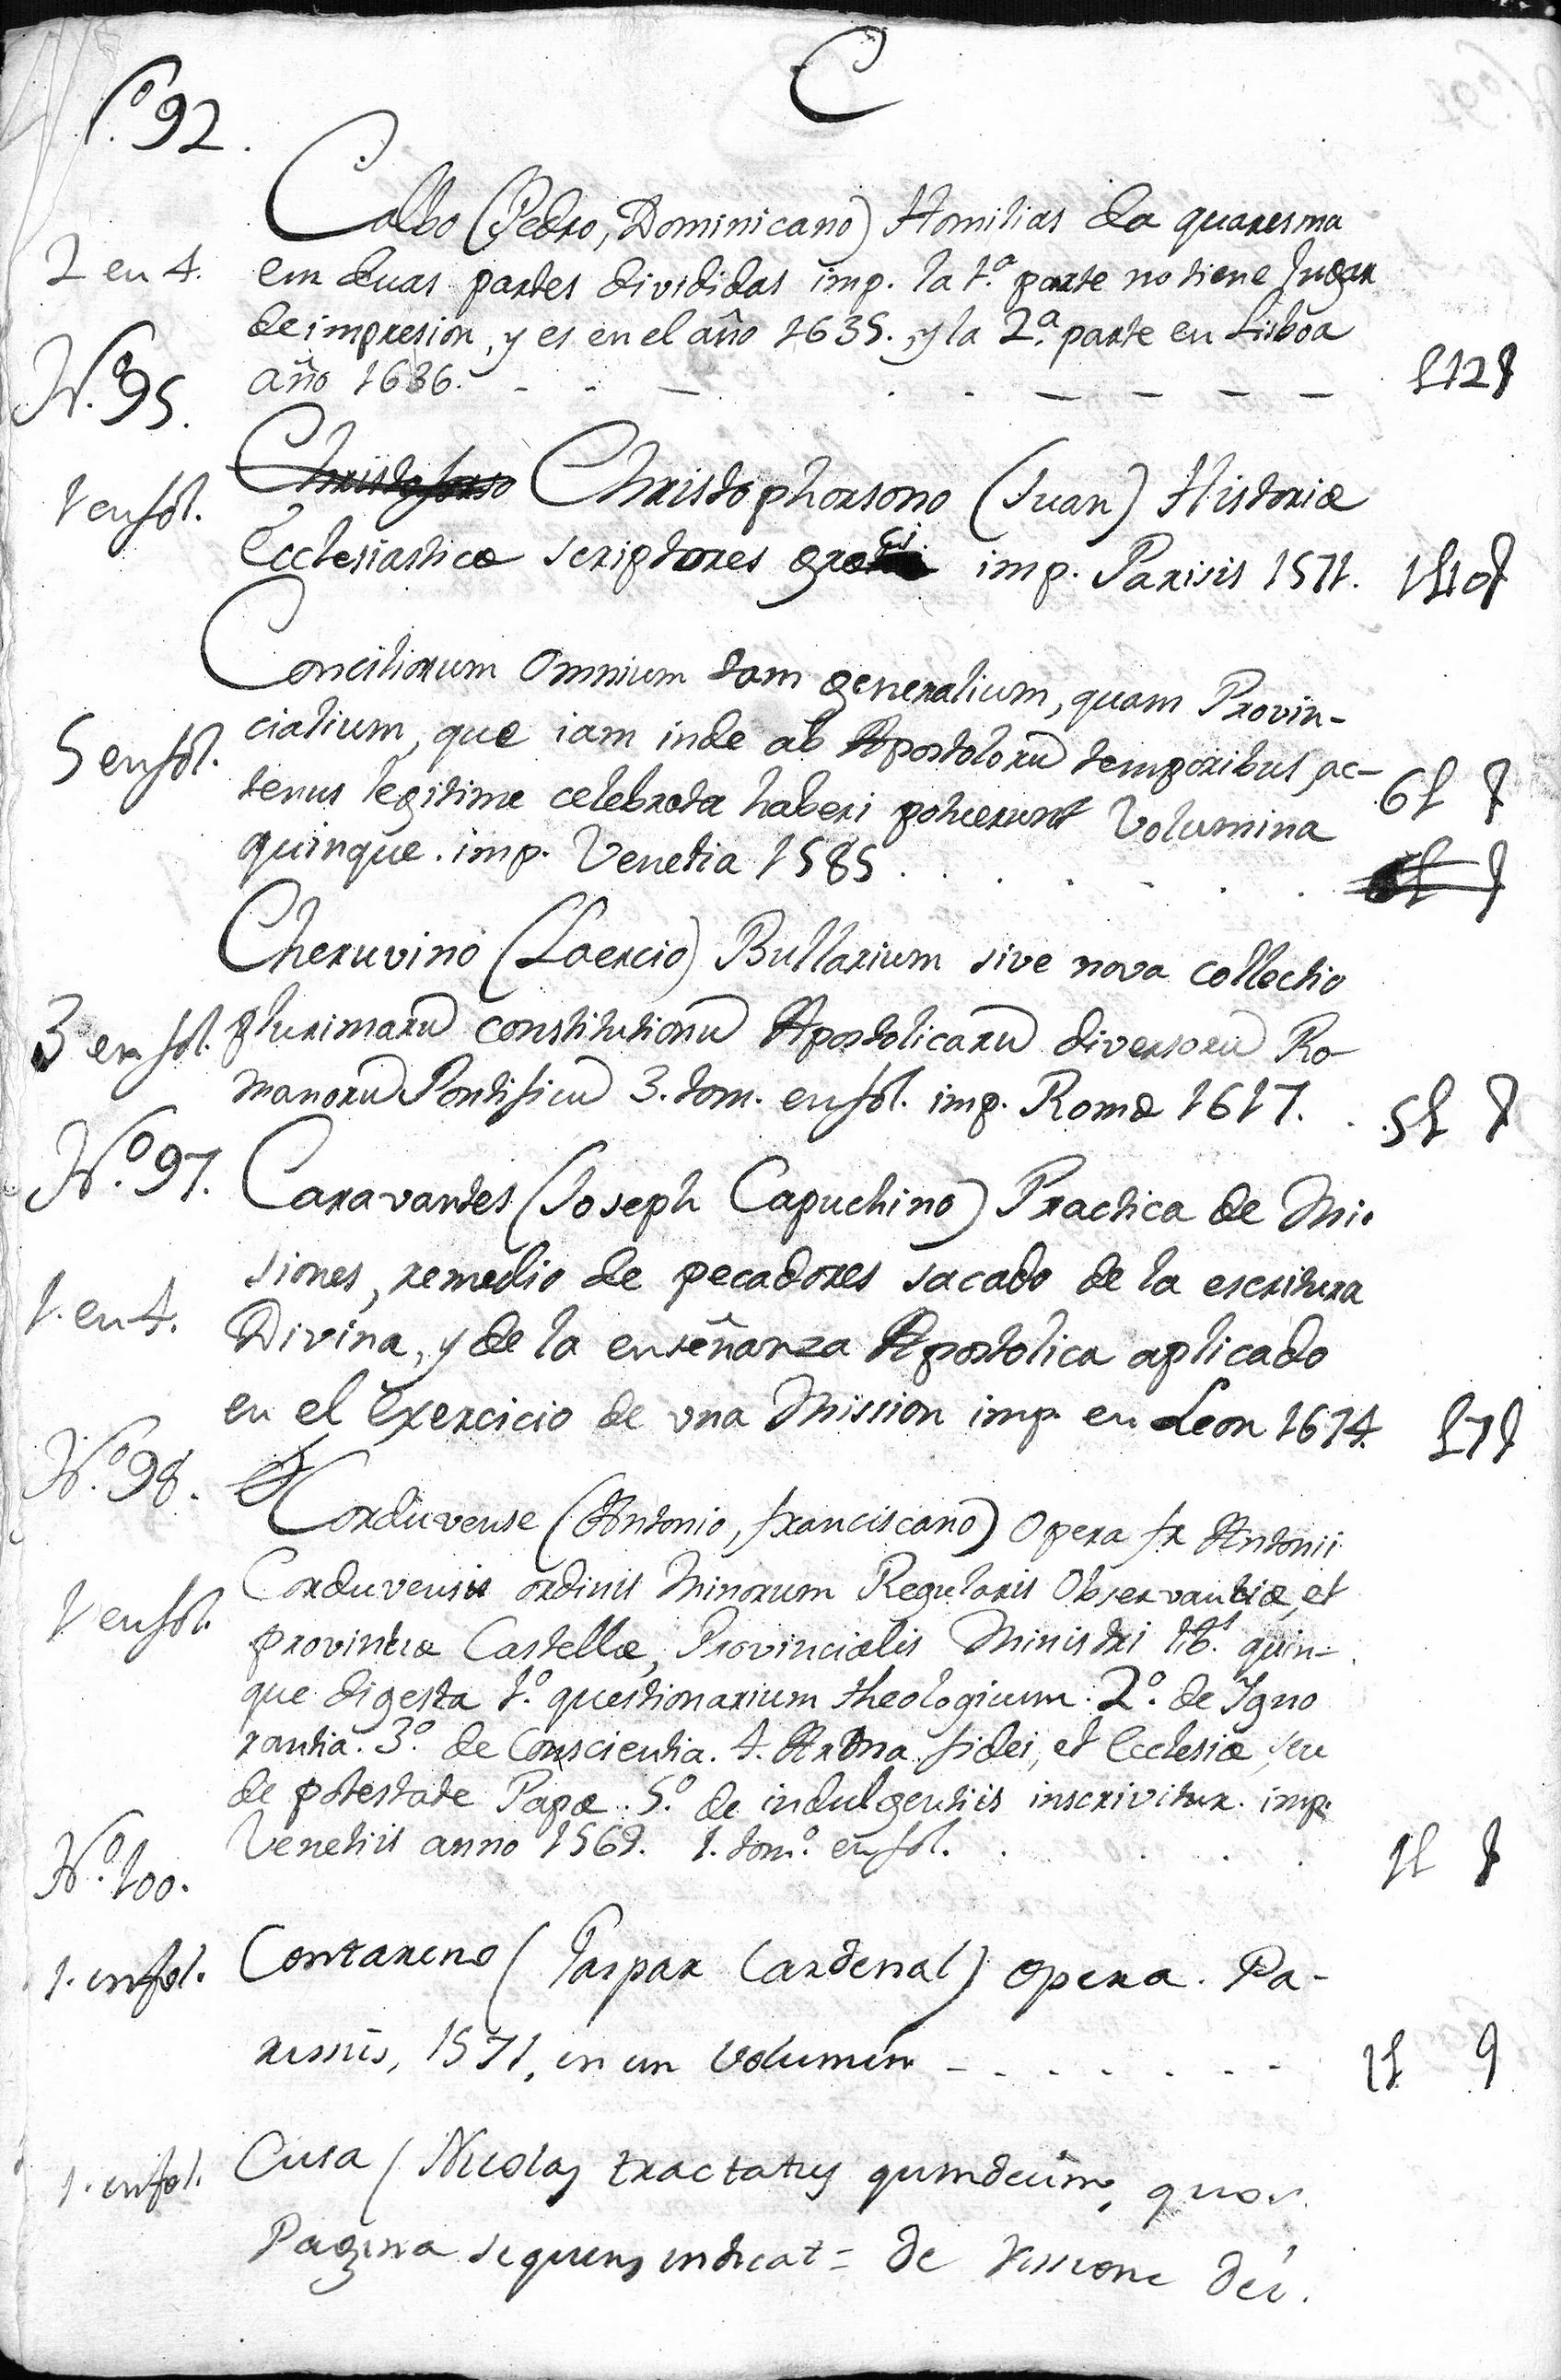 C
fº. 92.
Calbo (Pedro, Dominicano) Homilias da quaresma
2 en 4. em duas partes divididas imp. la 1.ª parte no tiene lugar
de impresion, y es en el año 1635., y la 2.ª parte en Lisboa
Nº. 95. año 1636. £12
1 en fol. Christoforso Christophorsono (Juan) Historiæ
Ecclesiasticæ scriptores græci imp. Parisis 1571. 1£10
Conciliorum omnium tam generalium, quam Provin-
5 en fol. cialium, que iam inde ab Apostolorũ temporibus ac-
tenus legitime celebrata haberi potuerunt Volumina 6£
quinque. imp. Venetia 1585
Cheruvino (Laercio) Bullarium sive nova collectio
3 en fol. plurimarũ constitutionũ Apostolicarũ diversorũ Ro-
manorũ Pontificũ 3. tom. en fol. imp. Romæ 1617. 5£
Nº. 97. Caravantes (Joseph Capuchino) Practica de Mi-
siones, remedio de pecadores sacado de la escritura
1. en 4. Divina, y de la enseñanza Apostolica aplicado
en el exercicio de una Mission imp. en Leon 1674. £7
Nº. 98. Corduvense (Antonio, franciscano) Opera fr Antonii
Corduvensis ordinis Minorum Regularis Observantiæ, et
1 en fol. provintiæ Castellæ, Provincialis Ministri lib.s quin-
que digesta 1.º questionarium theologicum. 2º. de Igno
rantia. 3.º de Conscientia. 4. Arma fidei, et Ecclesiæ, seu
de potestate Papæ. 5.º de indulgentiis inscrivitur. imp.
Venetiis anno 1569. 1. tom.º en fol. 1£
Nº. 100.
1. en fol. Contareno (Gaspar Cardenal) opera. Pa-
rissiis, 1571, en un volumen 1£
1. en fol. Cusa (Nicolas tractatus quindecim, quos
Pagina sequens indicat = de vissione dei.